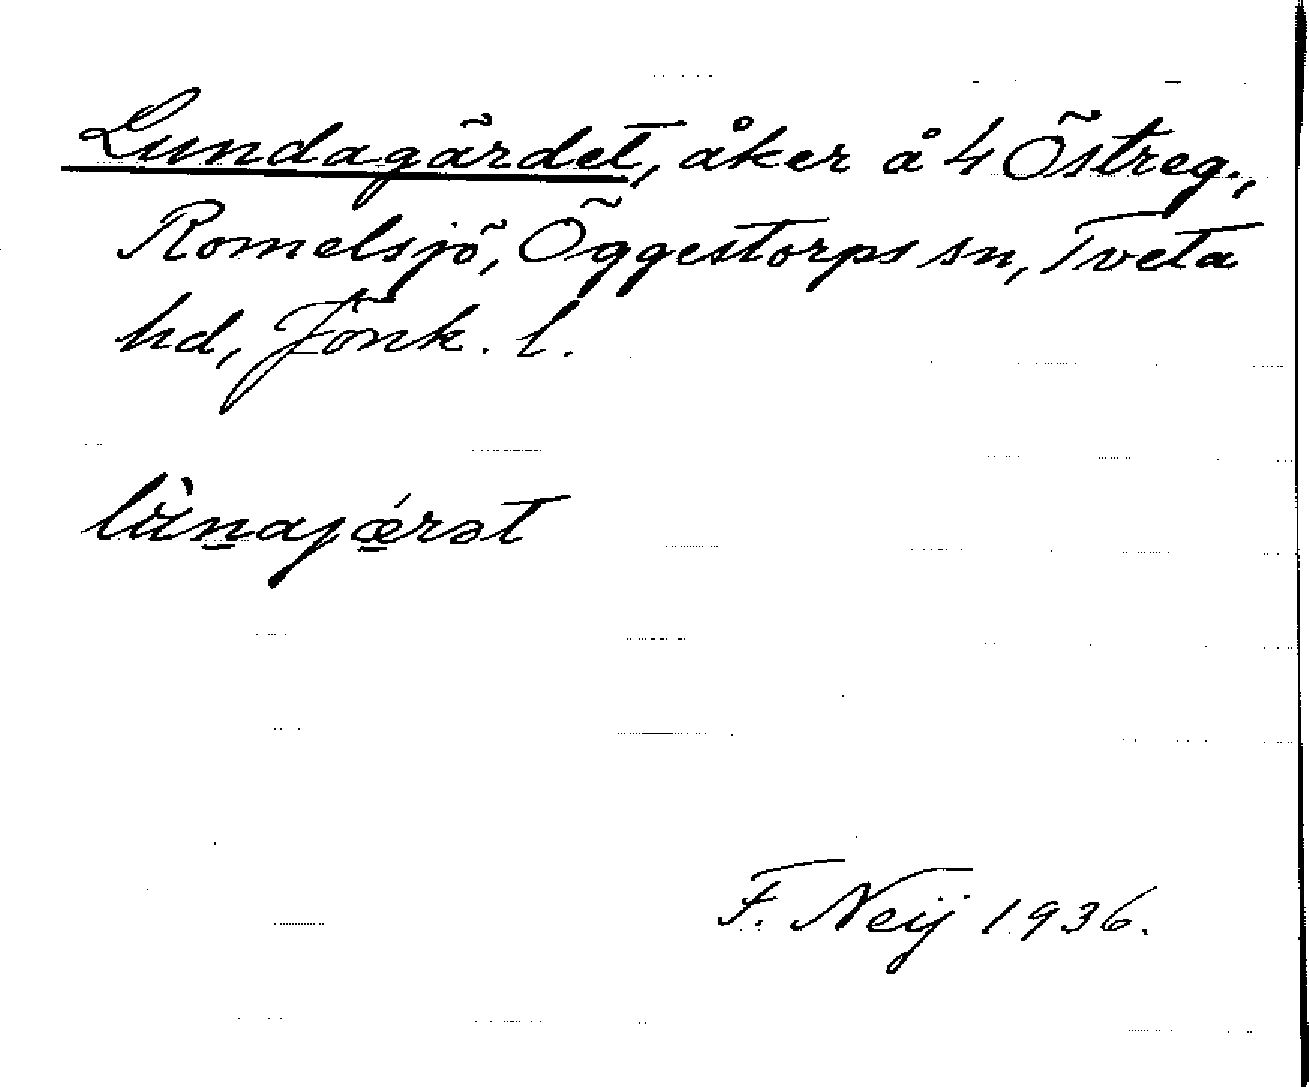 Lundagärdet, åker å 4 Östreg.,
Romelsjö, Öggestorps sn, Tveta
hd, Jönk. l.
lùnajǽrət
F. Neij 1936.